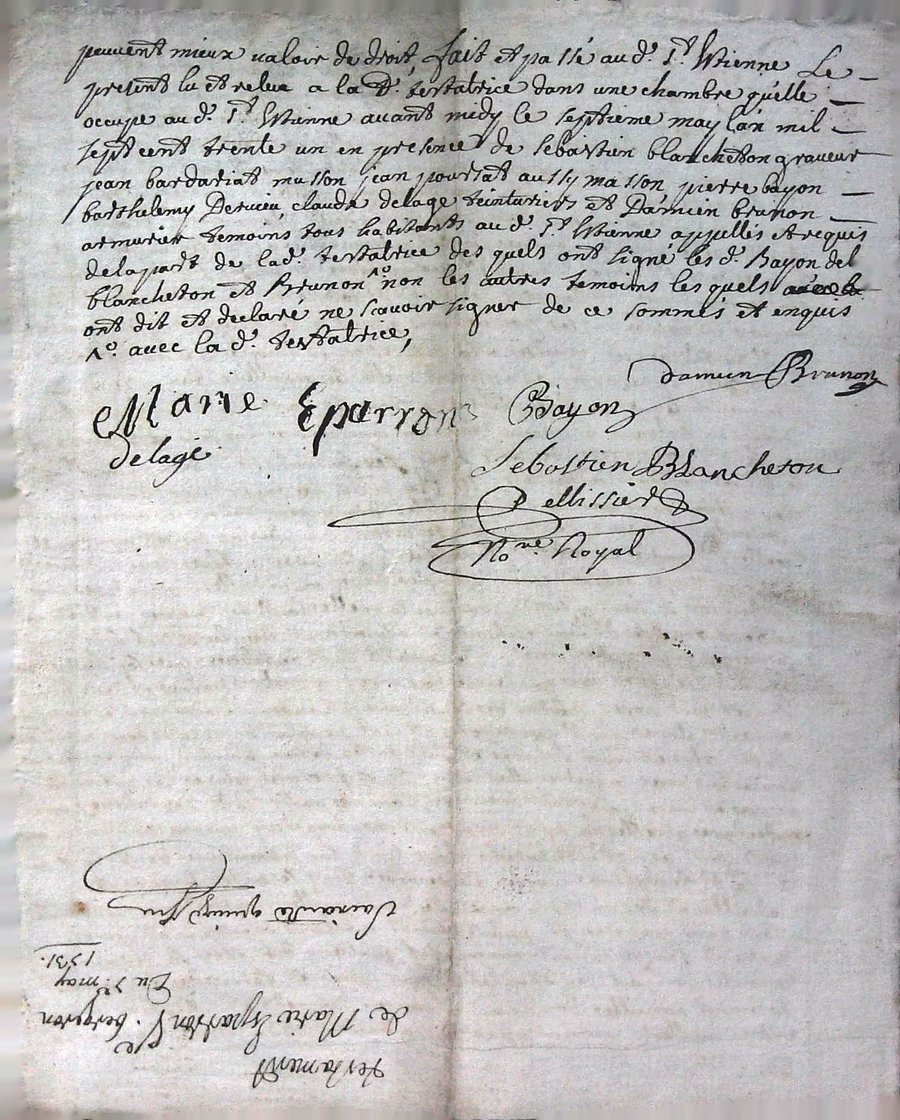 peuvent mieux valoir de droit, fait et passé au d. St. Etienne Le
present lu et relu a la D. testatrice dans une chambre qu'elle
occupe au d. St. Etienne avant midy le septieme may lan mil
sept cent trente un en presence de sebastien blancheton graveur
jean bardariat masson jean pourrat aussy masson pierre bayon
barthelemy claude delage teinturiers et Damien brunon
armurier temoins tous habitants au d. St. Etienne appellés et requis
de la part de la d. testatrice des quels ont signé les d. Bayon del
blancheton et Brunon ^o. non les autres temoins les quels
ont dit et declaré ne scavoir signer de ce sommés et enquis
^o. avec la d. testatrice,
damien Brunon
Marie Eparron Bayon
delage
Sebastien Blancheton
Pellissier
No.re Royal
testament
de Marie Esparron V. bergeron
Du 7e. may
1731.